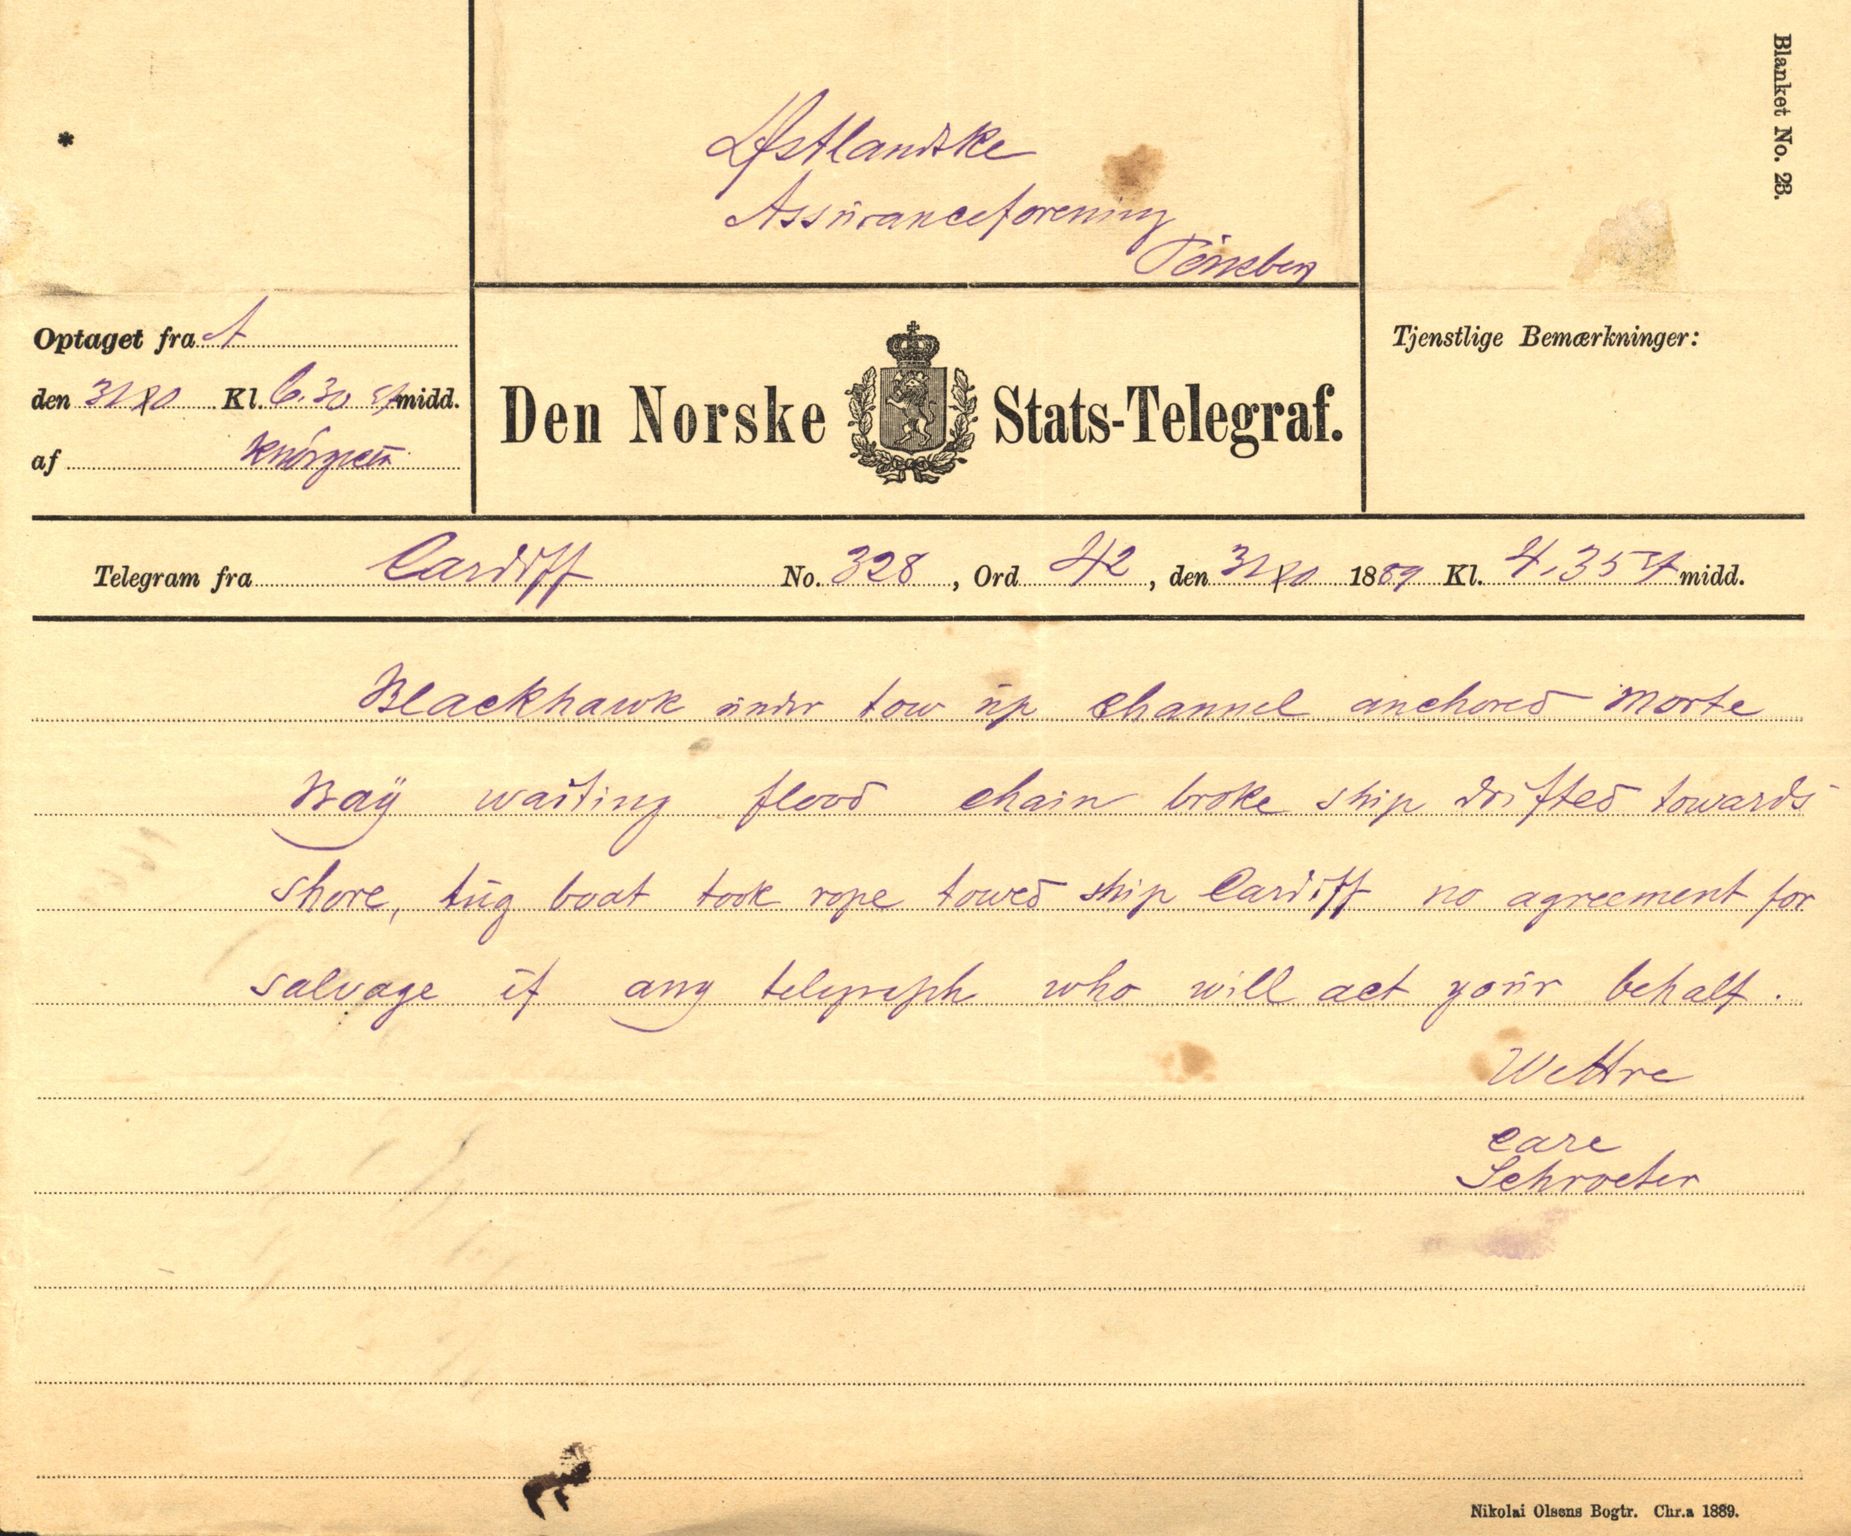 Blanket No. 23.
*
Østlandske
Assuranceforening
Tönsberg
Optaget fra A
den 31/10 Kl. 6.30 Etmidd.
af
Den Norske Stats-Telegraf.
Tjenstlige Bemærkninger:
Telegram fra Cardiff No. 328, Ord 42, den 31/10 1889 Kl. 4.35 Etmidd.
Blackhawk under tow up channel anchored Morte
Bay waiting flood chain broke ship drifted towards
shore, tug boat took rope towed ship Cardiff no agreement for
salvage if any telegraph who will act your behalf.
Wettre
care
Schroeter
Nikolai Olsens Bogtr. Chr.a 1889.